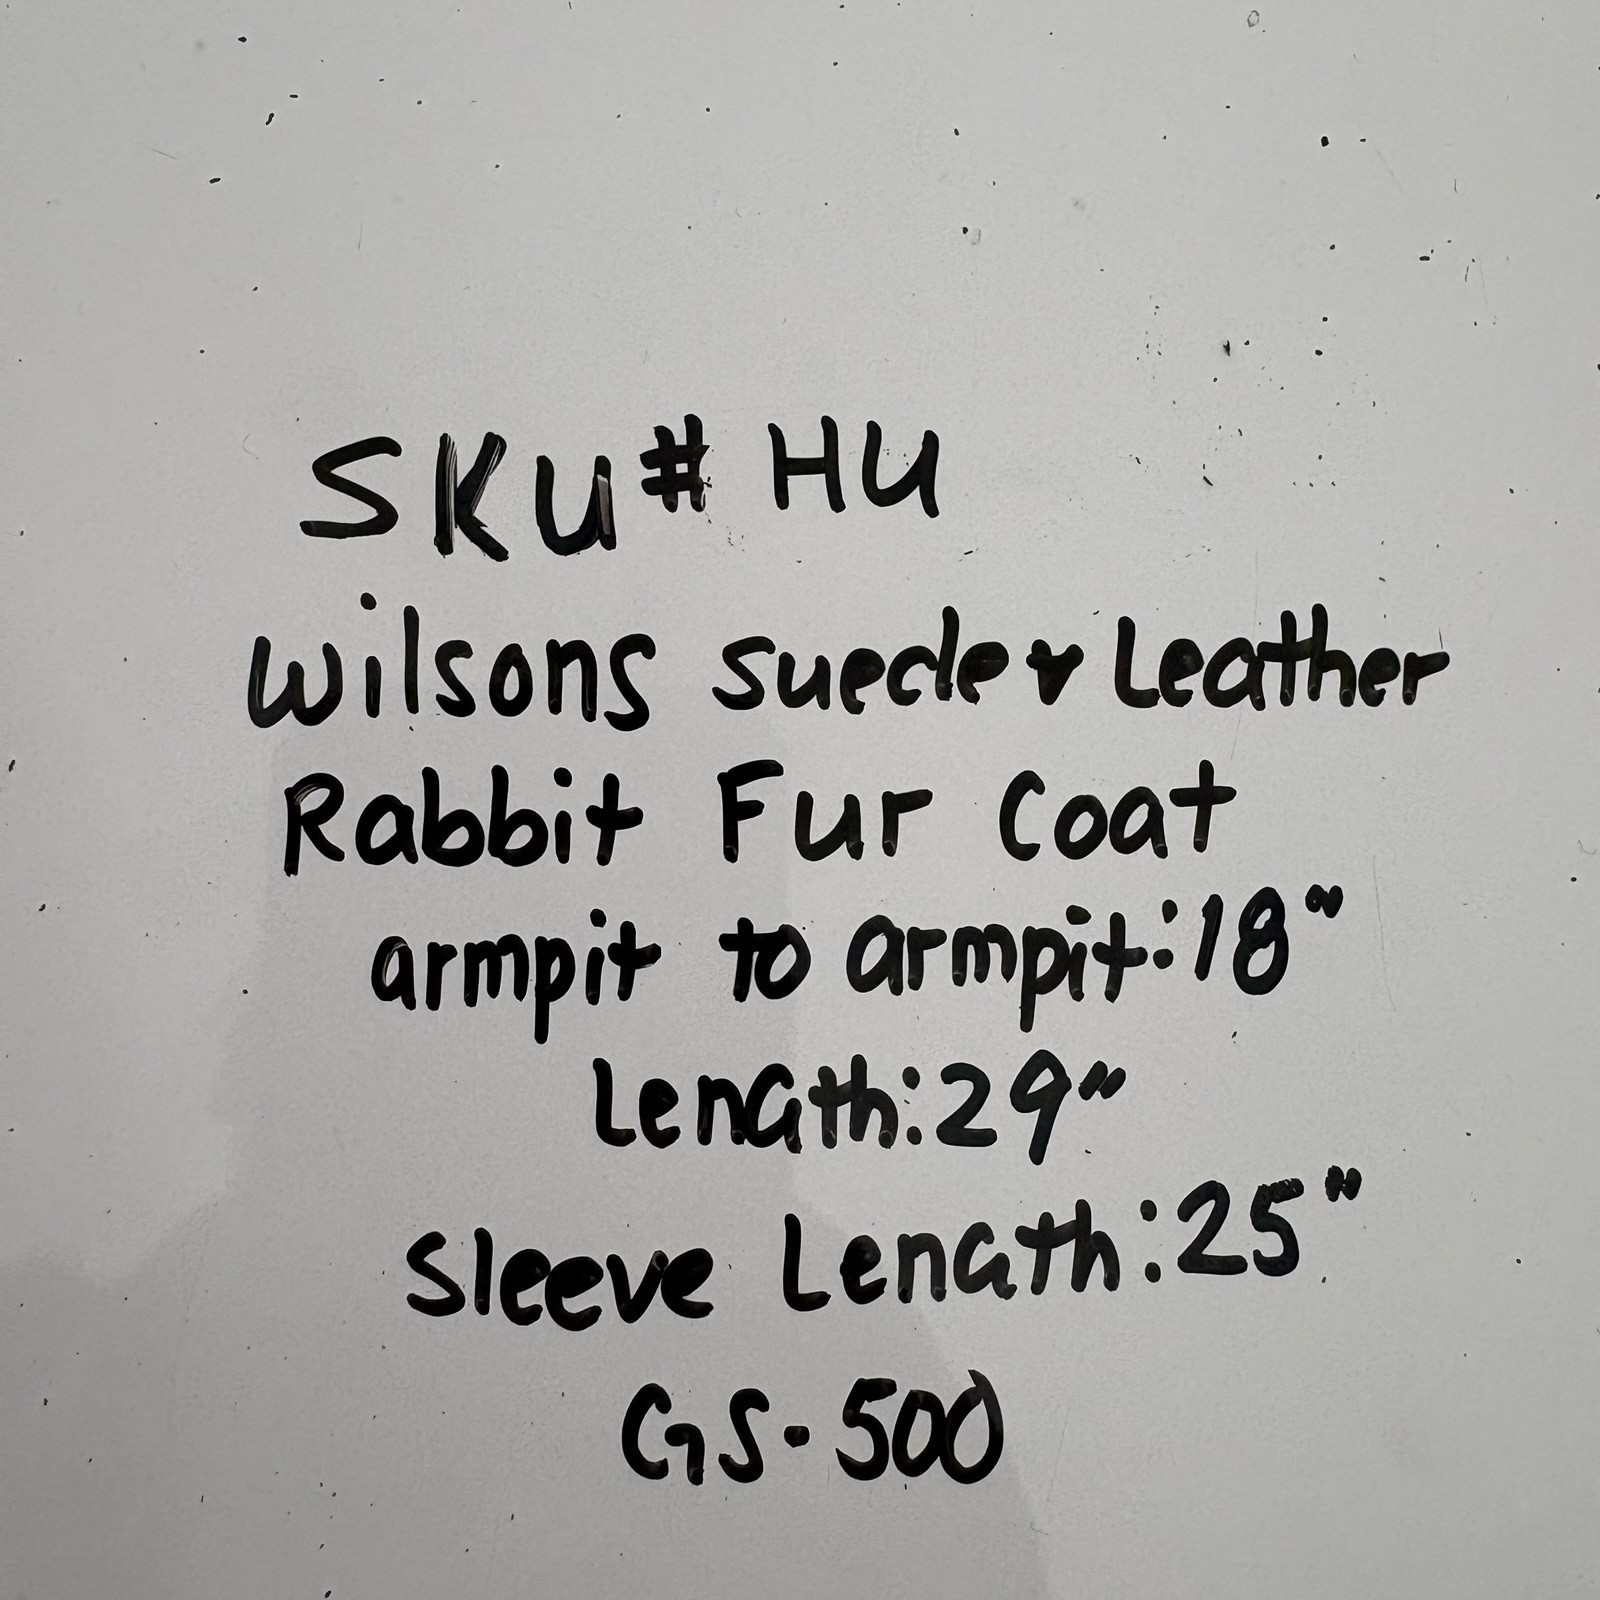 SKU# HU
Wilsons Suede & Leather
Rabbit Fur Coat
armpit to armpit:18"
Length:29"
Sleeve Length:25"
GS-500